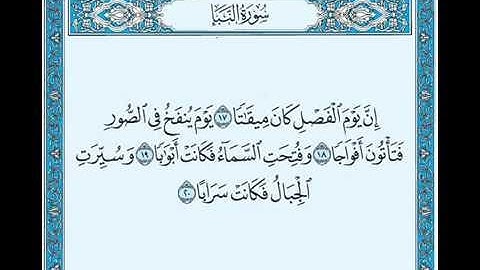 سُورَةُ النَّبَإِ
إِنَّ يَوْمَ الْفَصْلِ كَانَ مِيقَاتًا ١٧ يَوْمَ يُنفَخُ فِي الصُّورِ
فَتَأْتُونَ أَفْوَاجًا ١٨ وَفُتِحَتِ السَّمَاءُ فَكَانَتْ أَبْوَابًا ١٩ وَسُيِّرَتِ
الْجِبَالُ فَكَانَتْ سَرَابًا ٢٠